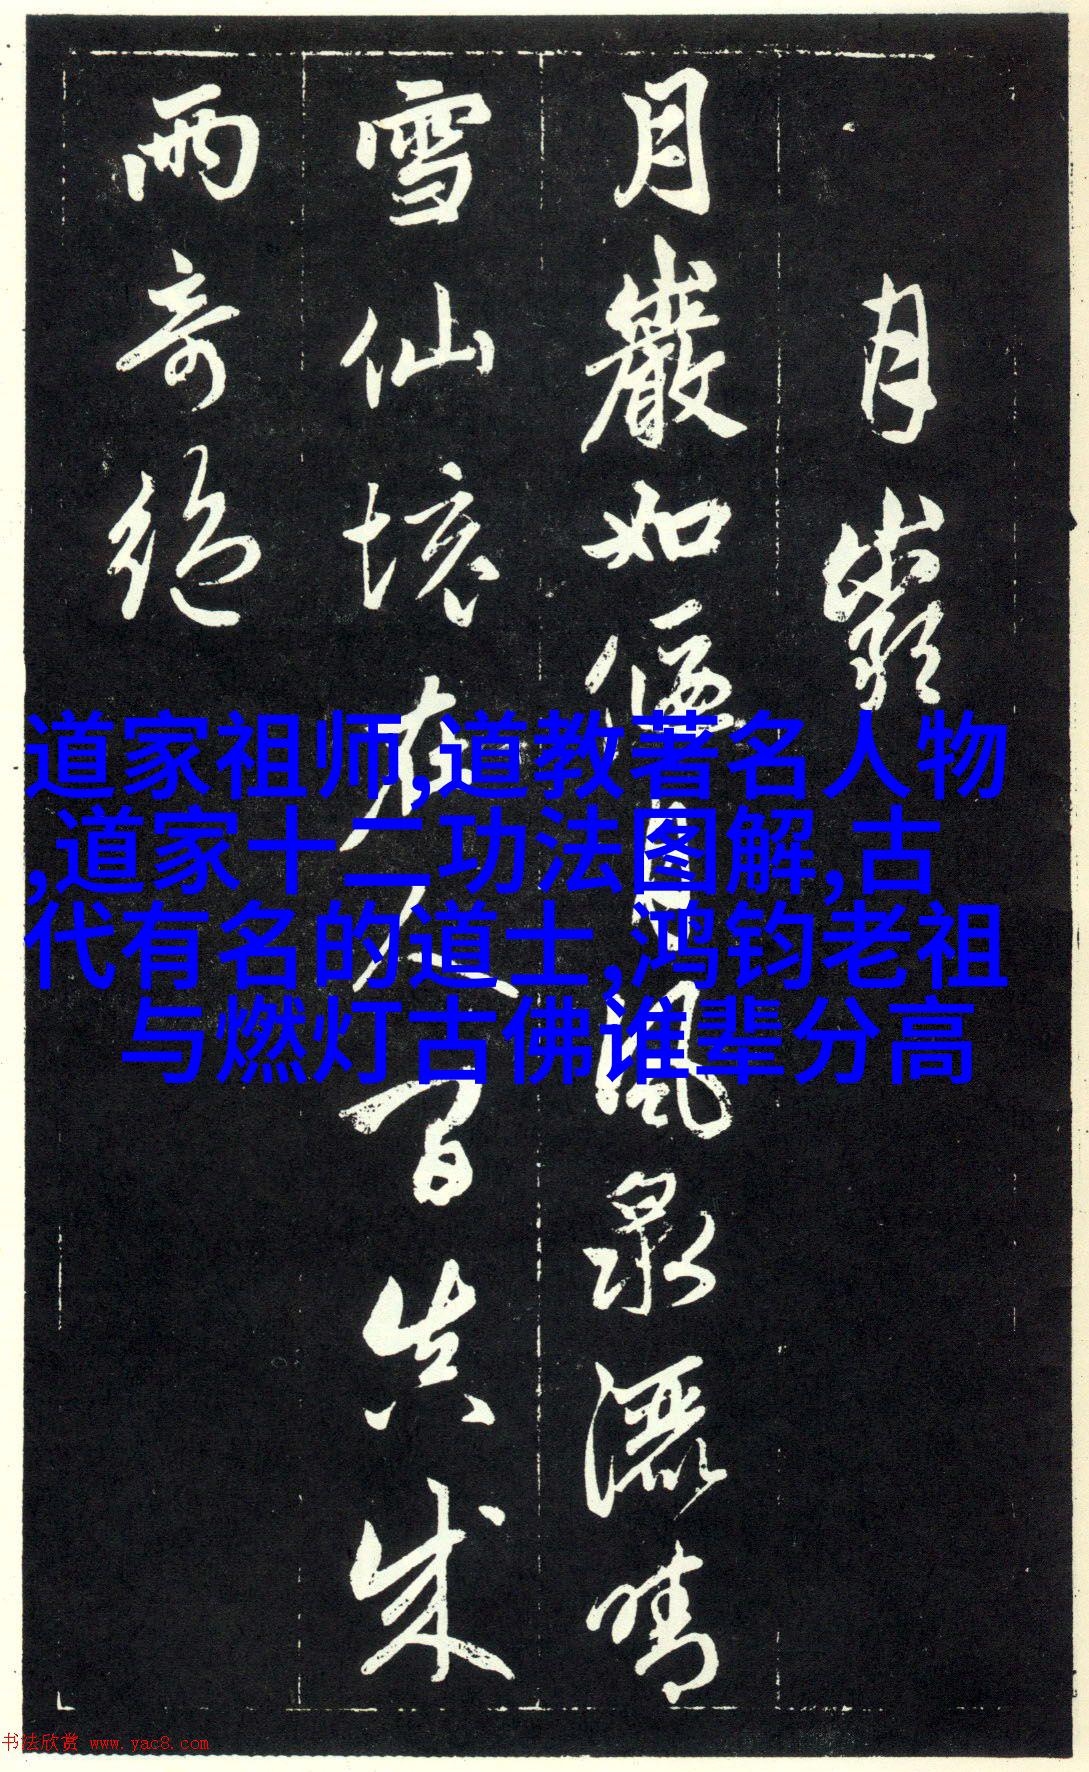 月巖
月巖如偃月風泉灑晴
雪仙境在人間真成
兩奇絕
道家祖师,道教著名人物
,道家十二功法图解,古
代有名的道士,鸿钧老祖
与燃灯古佛谁辈分高
书法欣赏 www.yac8.com